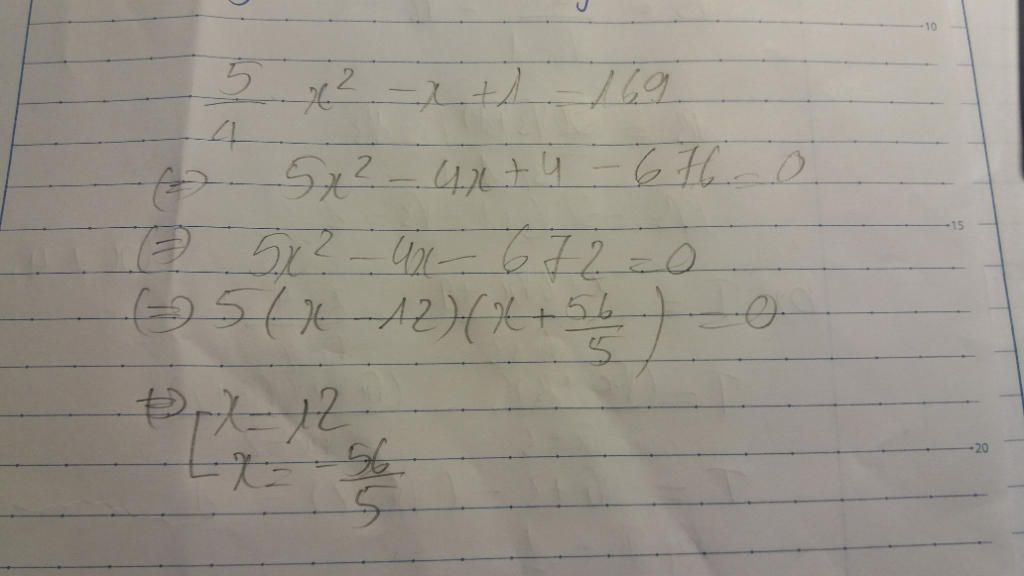 10
5/4 x² - x + 1 = 169
(=) 5x² - 4x + 4 - 676 = 0
15
(=) 5x² - 4x - 672 = 0
(=) 5(x - 12)(x + 56/5) = 0
(=) [ x = 12
20
x = -56/5